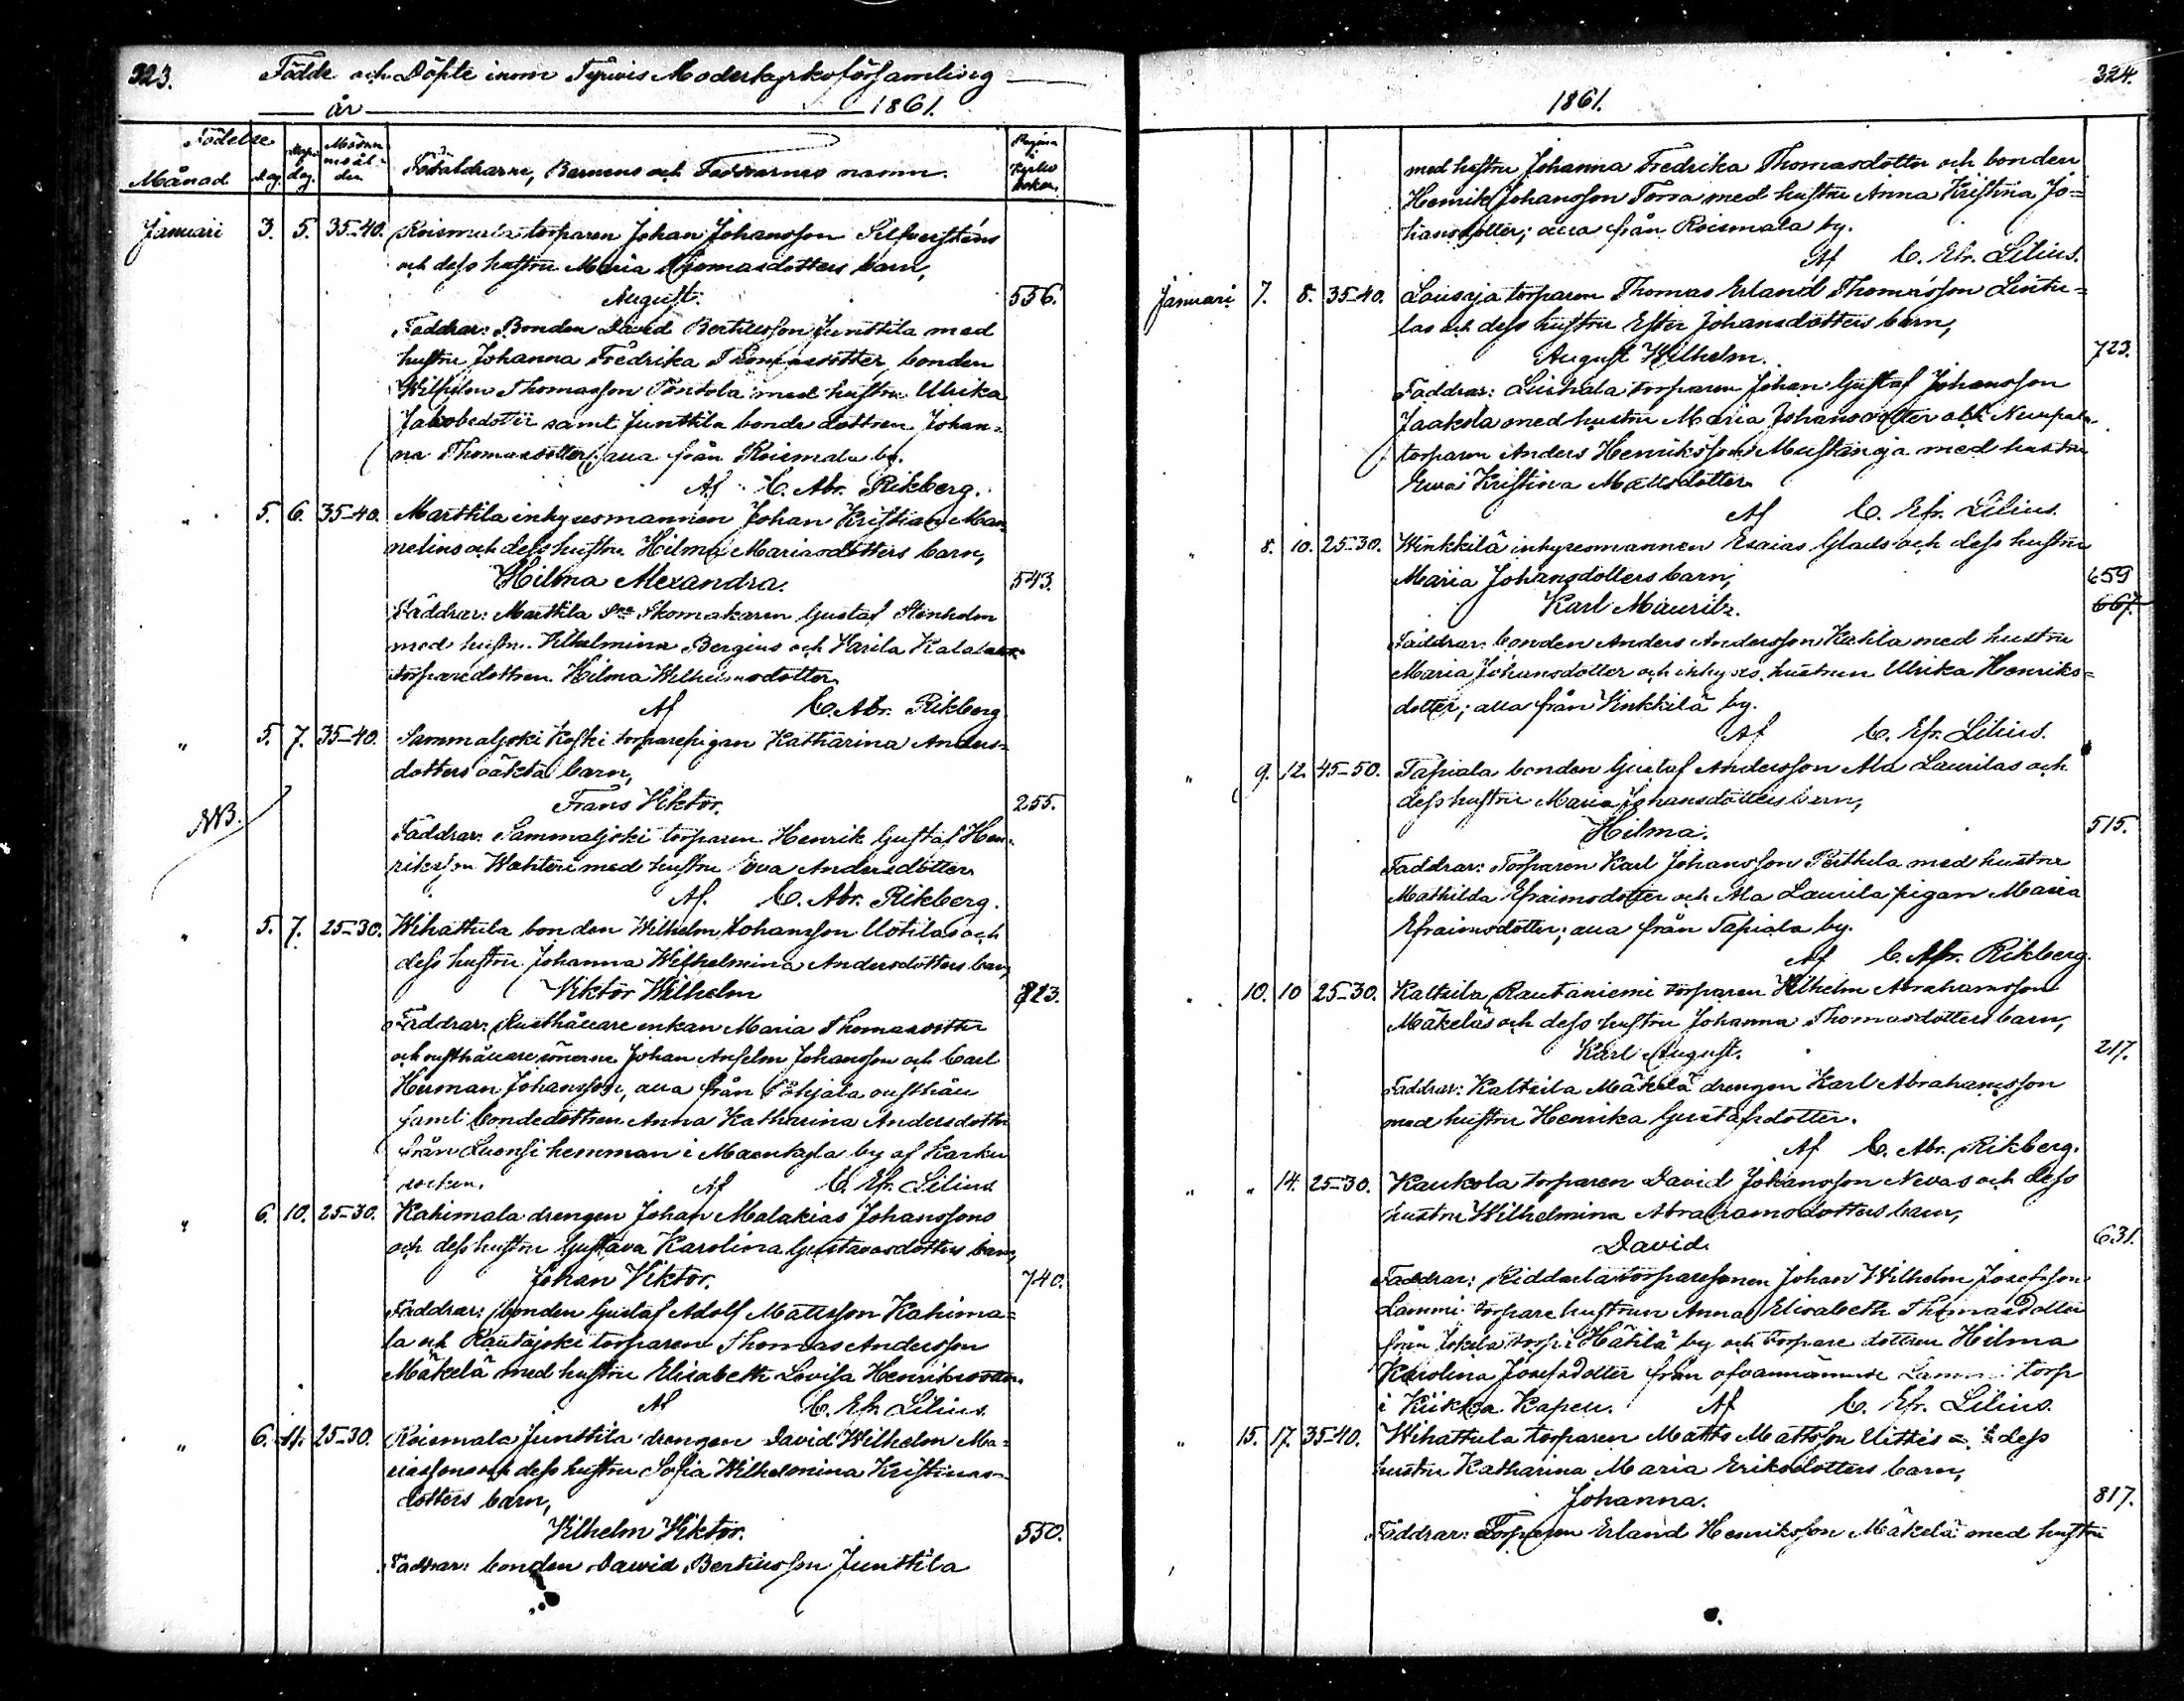 323.
Födde och Döpte inom Tyrwis Moderkyrkoförsamling
år 1861.
Födelse
Månad
dag.
dag.
Modrens ålder
Föräldrarne, Barnens och Faddrarnes namn.
Pagina i Kyrkoboken.
Januari 3. 5. 35-40. Roismala torparen Johan Johansson Silfversténs
och dess hustru Maria Thomasdotters barn,
August. 556.
Faddrar: Bonden David Bertilsson Junttila med
hustru Johanna Fredrika Thomasdotter, bonden
Wilhelm Thomasson Pöntola med hustru Ulrika
Jakobsdotter samt Junttila bonde dottren Johan=
na Thomasdotter; alla från Roismala by.
Af C. Abr. Rikberg.
" 5. 6. 35-40. Marttila inhysesmannen Johan Kristian Man=
nelins och dess hustru Hilma Mariasdotters barn,
Hilma Alexandra. 543.
Faddrar: Marttila Skomakaren Gustaf Stenholm
med hustru Wilhelmina Bergius och Warila
torparedottren Hilma Wilhelmsdotter.
Af C. Abr. Rikberg
" 5. 7. 35-40. Sammaljoki Koski torparepigan Katharina Anders=
dotters oäkta barn,
NB. Frans Viktor. 255.
Faddrar: Sammaljoki torparen Henrik Gustaf Hen=
riksson Wahteri med hustru Eva Andersdotter.
Af. C. Abr. Rikberg.
" 5. 7. 25-30. Wihattula bonden Wilhelm Johansson Uotilas och
dess hustru Johanna Wilhelmina Andersdotters barn,
Viktor Wilhelm 823.
Faddrar: Rusthållare enkan Maria Thomasdotter
och rusthållare sönerne Johan Anselm Johansson och Carl
Herman Johansson, alla från rusthåll
samt bondedottren Anna Katharina Andersdotter
från Luonsi hemman i by af Karku
socken. Af C. Efr. Lilius
" 6. 10. 25-30. Kahimala drengen Johan Malakias Johanssons
och dess hustru Gustava Karolina Gustavasdotters barn,
Johan Viktor. 740.
Faddrar: bonden Gustaf Adolf Mattsson Kahima=
la och Rautajoki torparen Thomas Andersson
Mäkelä med hustru Elisabeth Lovisa Henriksdotter.
Af C. Efr. Lilius.
" 6. 11. 25-30. Roismala Junttila drengen David Wilhelm Ma=
riassons och dess hustru Sofia Wilhelmina Kristinas=
dotters barn,
Vilhelm Viktor. 550.
Faddrar: bonden Dawid Bertilsson Junttila
324.
1861.
med hustru Johanna Fredrika Thomasdotter och bonden
Henrik Johansson Torra med hustru Anna Kristina Jo=
hansdotter; alla från Roismala by.
Af C. Efr. Lilius.
Januari 7. 8. 35-40. Lousaja torparen Thomas Erland Thomasson Lintu=
las och dess hustru Ester Johansdotters barn,
August Wilhelm. 723.
Faddrar: Liuhala torparen Johan Gustaf Johansson
Jaakola med hustru Maria Johansdotter och
torparen Anders Henriksson Mustanoja med hustru
Ewa Kristina Mattsdotter
Af C. Efr. Lilius.
" 8. 10. 25-30. Winkkilä inhysesmannen Esaias Glads och dess hustru
Maria Johansdotters barn, 659
Karl Mauritz. 667.
Faddrar: bonden Anders Andersson Katila med hustru
Maria Johansdotter och inhyses hustrun Ulrika Henriks=
dotter; alla från Vinkkilä by.
Af C. Efr. Lilius.
" 9. 12. 45-50. Tapiala bonden Gustaf Andersson Ala Laurilas och
dess hustru Maria Johansdotters barn,
Hilma. 515.
Faddrar: Torparen Karl Johansson Perttula med hustru
Mathilda Efraimsdotter och Ala Laurila pigan Maria
Efraimsdotter; alla från Tapiala by.
Af C. Abr. Rikberg.
" 10. 10 25-30. Kaltsila Rautaniemi torparen Wilhelm Abrahamsson
Mäkeläs och dess hustru Johanna Thomasdotters barn,
Karl August. 217.
Faddrar: Kaltsila Mäkelä drengen Karl Abrahamsson
med hustru Henrika Gustafsdotter.
Af C. Abr. Rikberg.
" " 14. 25-30. Kaukola torparen David Johansson Nevas och dess
hustru Wilhelmina Abrahamsdotters barn,
David. 631.
Faddrar: Riddala torparesonen Johan Wilhelm Josefsson
Lammi torpare hustrun Anna Elisabeth Thomasdotter
från torp i Häkilä by och torpare dottren Hilma
Karolina Josefsdotter från ofvannämnde Lammi torp
i Kiikka Kapell. Af C. Efr. Lilius.
" 15. 17. 35-40. Wihattula torparen Matts Mattsson Uittis och dess
hustru Katharina Maria Eriksdotters barn,
Johanna. 817.
Faddrar: Torparen Erland Henriksson Mäkelä med hustru